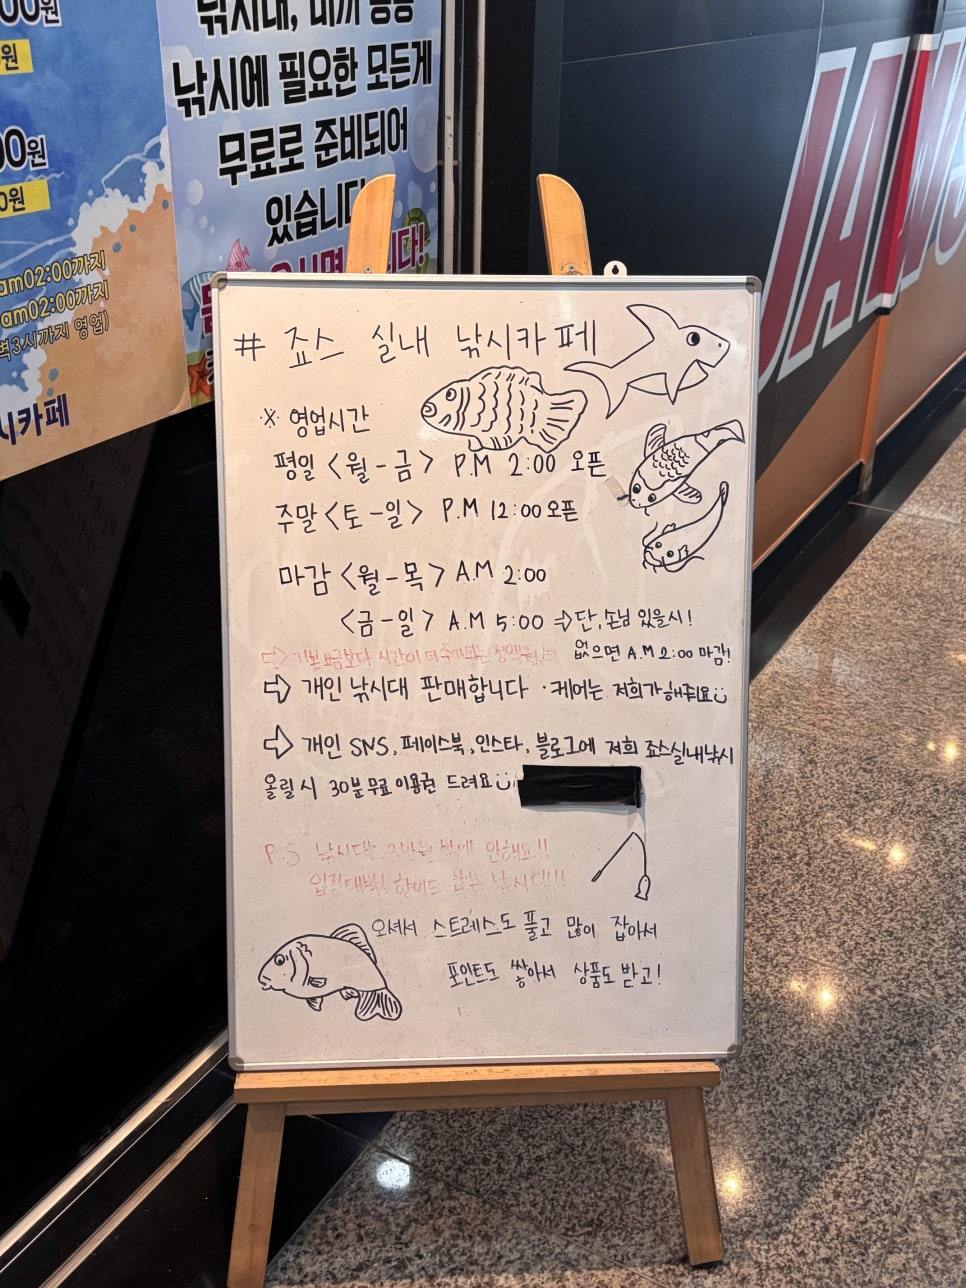 00원
원
00원
0원
am02:00까지
am02:00까지
벽3시까지 영업)
시카페
낚시대, 미끼 등등
낚시에 필요한 모든게
무료로 준비되어
있습니다
JAWS
# 죠스 실내 낚시카페
※ 영업시간
평일 <월-금> P.M 2:00 오픈
주말 <토-일> P.M 12:00 오픈
마감 <월-목> A.M 2:00
<금-일> A.M 5:00 ⇒ 단, 손님 있을시!
없으면 A.M 2:00 마감!
⇒ 기본요금보다 시간이 더 추가되는 정액권
⇒ 개인 낚시대 판매합니다 · 케어는 저희가 해줘요
⇒ 개인 SNS, 페이스북, 인스타, 블로그에 저희 죠스실내낚시
올릴시 30분 무료 이용권 드려요
P.S 낚시대 2만원 밖에 안해요!!
입질대박! 향어도 낚는 낚시대!!!
오셔서 스트레스도 풀고 많이 잡아서
포인트도 쌓아서 상품도 받고!